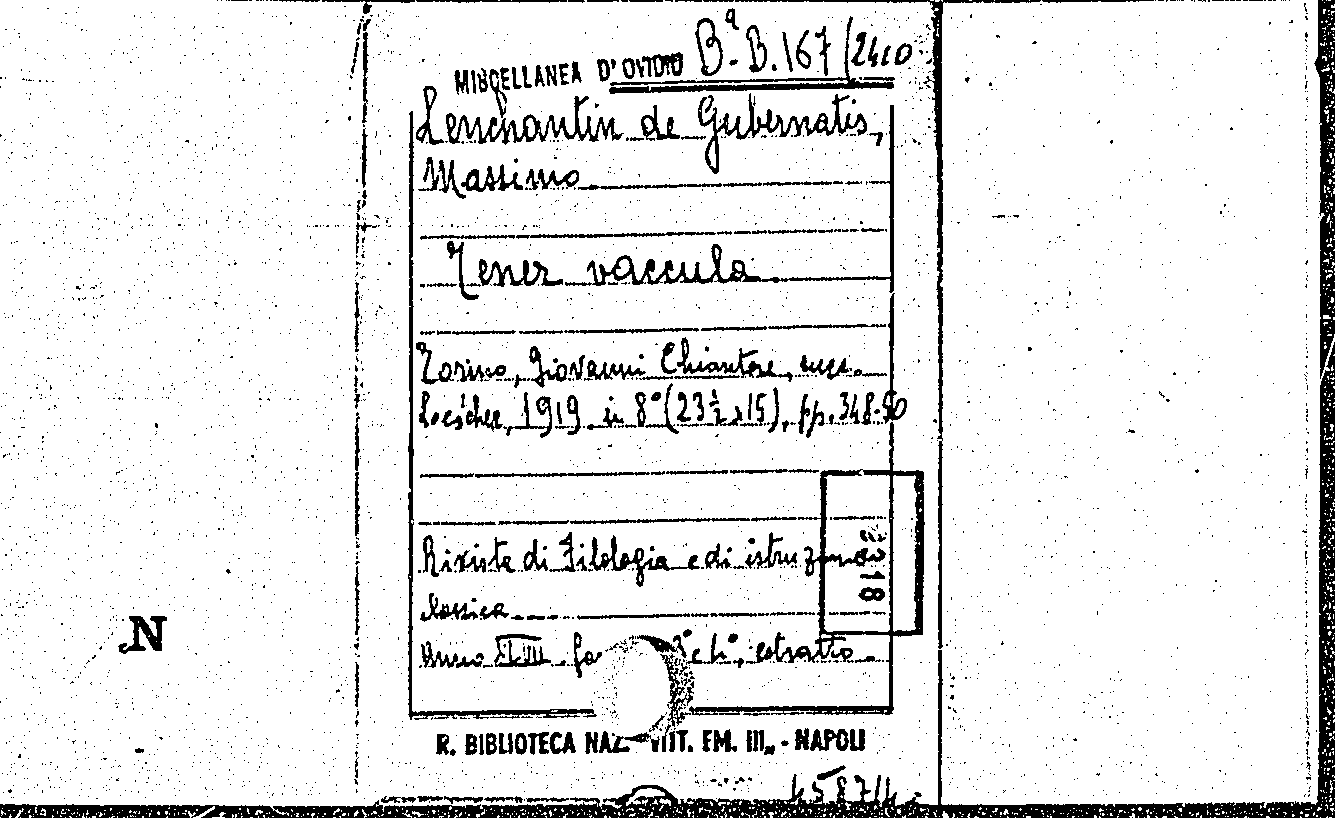 MISCELLANEA D'OVIDIO Bª. B. 167/2410
Lenchantin de Gubernatis,
Massimo.
Tener vaccula.
Torino, Giovanni Chiantore, succ.
Loescher, 1919. in 8° (23½ x 15), pp. 348-50
Rivista di Filologia e di istruzione
classica
Anno XLVII. fa 3° e 4°, estratto.
18
N
R. BIBLIOTECA NAZ. VITT. EM. III„ - NAPOLI